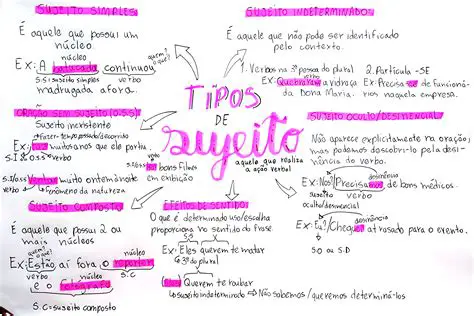 SUJEITO SIMPLES
É aquele que possui um
núcleo
núcleo
Ex: A batucada continuou
quem?
o que?
S.S: sujeito simples verbo
madrugada afora.
SUJEITO INDETERMINADO
É aquele que não pode ser identificado
pelo contexto.
1. Verbos na 3ª pessoa do plural
Ex: Quebraram a vidraça
da Dona Maria.
2. Partícula -SE
Ex: Precisa-se de funcioná-
rios naquela empresa.
TIPOS
DE
sujeito
aquele que realiza
a ação verbal
ORAÇÃO SEM SUJEITO (O.S.S)
Sujeito inexistente
Fazer: tempo passado/decorrido
Ex: Faz muitos anos que ele partiu.
S.I & O.S.S verbo
bons filmes
em exibição
S.I & O.S.S Ventou muito ontem à noite
verbo fenômeno da natureza
SUJEITO OCULTO/DESINENCIAL
Não aparece explicitamente na oração,
mas podemos descobri-lo pela desi-
nência do verbo.
desinência
Ex: Nós? Precisamos de bons médicos.
Sujeito verbo
oculto/desinencial
desinência
Ex: Eu? / Cheguei atrasado para o evento.
S.O ou S.D
SUJEITO COMPOSTO
É aquele que possui 2 ou
mais núcleos
núcleo
Ex: Estão aí fora o repórter
verbo núcleo S.C
e o fotógrafo
S.C = sujeito composto
EFEITOS DE SENTIDO
O que é determinado uso/escolha
proporciona no sentido da frase.
Ex: Eles querem te matar
3ª do plural
Querem te roubar
sujeito indeterminado → Não sabemos/queremos determiná-los